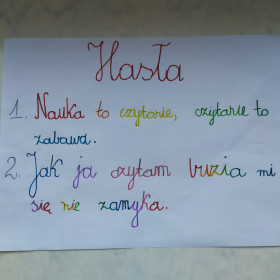 Hasła
1. Nauka to czytanie, czytanie to
zabawa.
2. Jak ja czytam buzia mi
się nie zamyka.